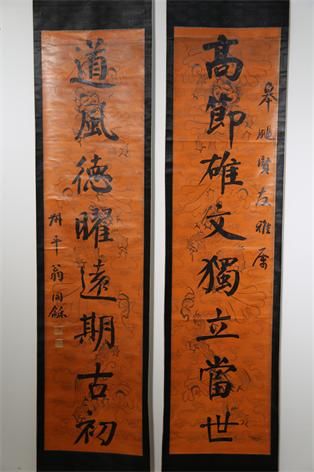 高節雄文獨立當世
賢友雅屬
道風德曜遠期古初
叔平翁同龢